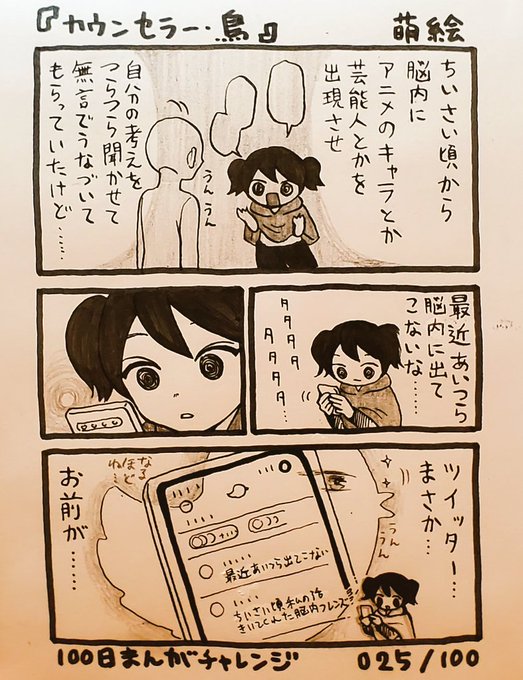 『カウンセラー・鳥』
萌絵
ちいさい頃から
脳内に
アニメのキャラとか
芸能人とかを
出現させ
自分の考えを
つらつら聞かせて
無言でうなづいて
もらっていたけど……
うんうん
最近あいつら
脳内に出て
こないな……
タタタタタタタ…
ツイッター…
まさか…
うんうん
なる
ほど
ね…
お前が……
最近あいつら出てこない
ちいさい頃私の話
きいてくれた脳内フレンズ
100日まんがチャレンジ
025/100